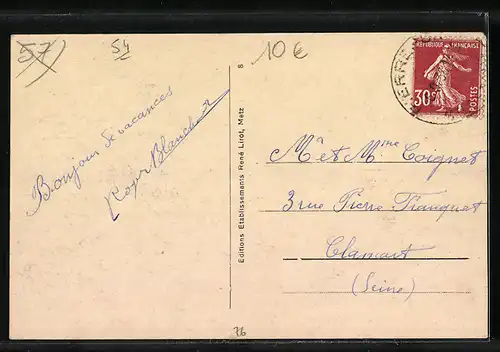 57
54
10€
8
RÉPUBLIQUE FRANÇAISE
30c
POSTES
PIERRE
Bonjour de vacances
Blanchet
Editions Etablissements René Lirot, Metz
Mr et Mme Coignet
3 rue Pierre Franquet
Clamart
(Seine)
76